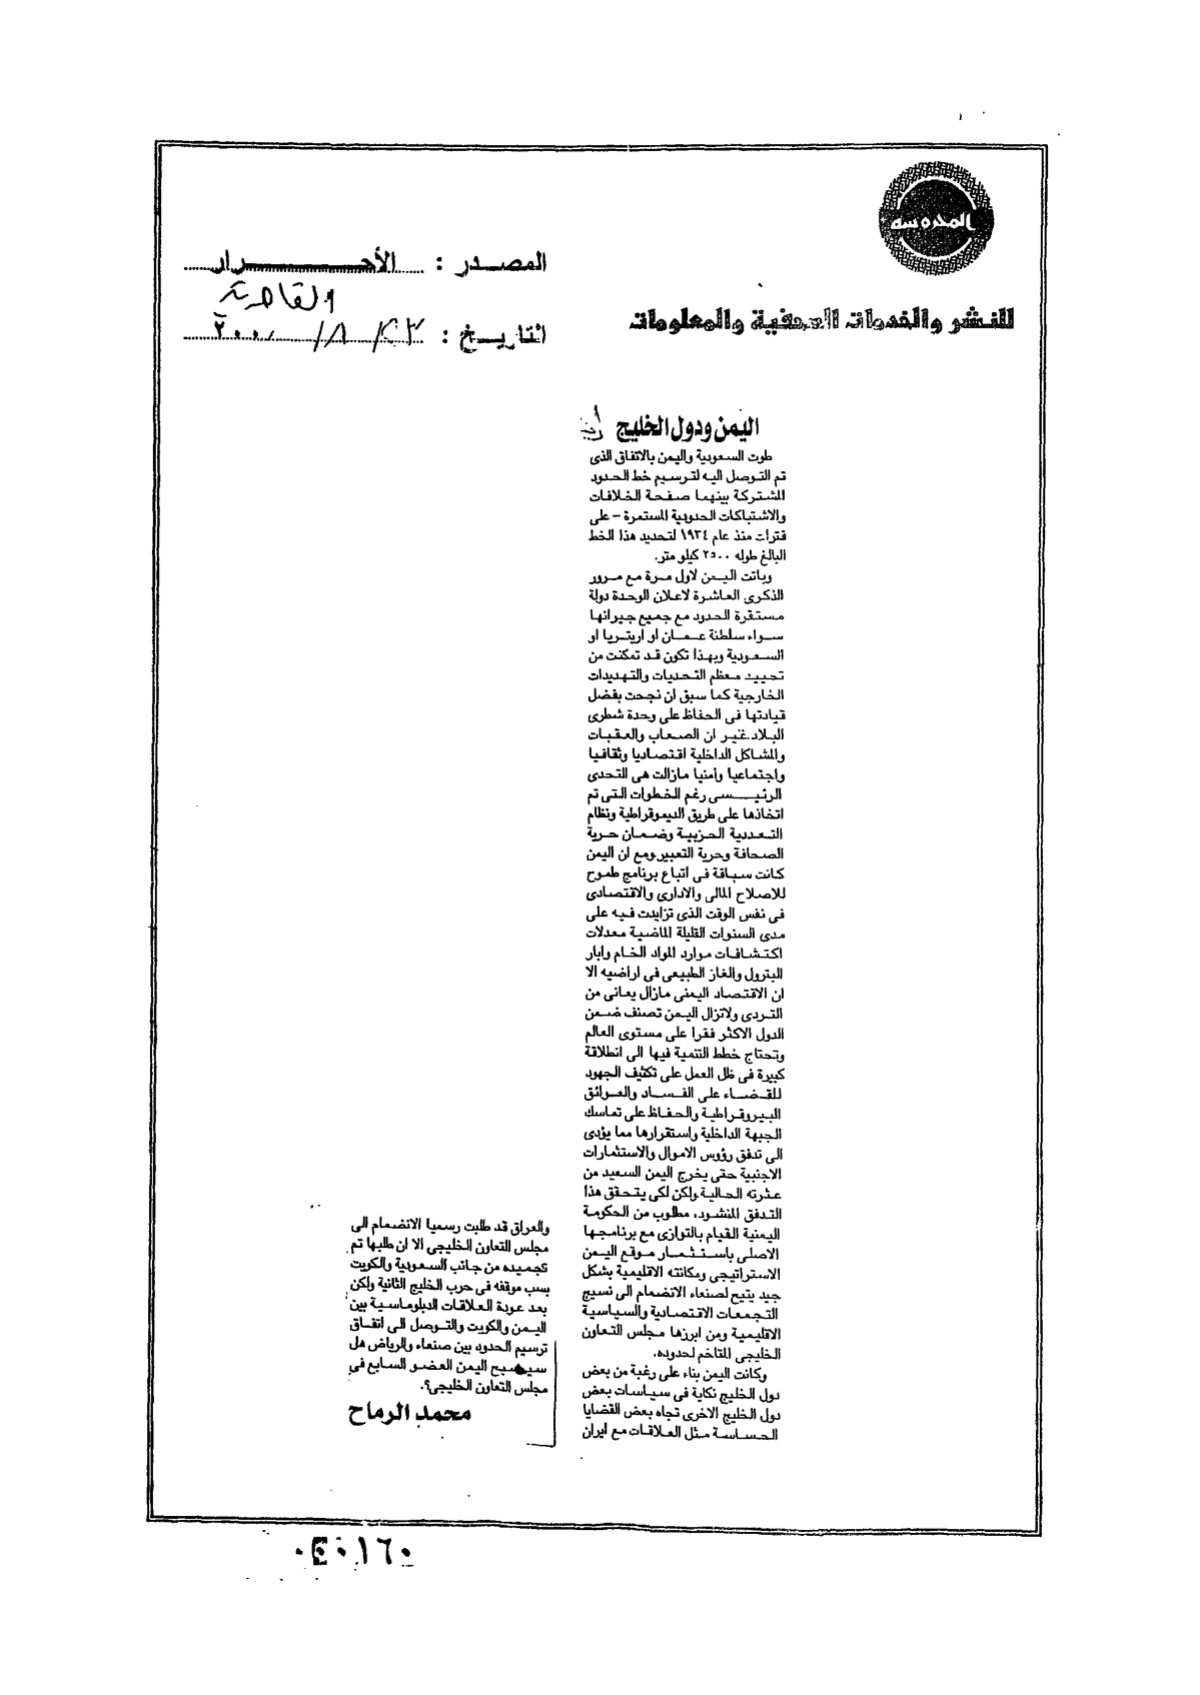 المحروسة
للنشر والخدمات الصحفية والمعلومات
المصدر : الأحرار
القاهرة
التاريخ : ٢٣ / ٨ / ٢٠٠٠
اليمن ودول الخليج
طوت السعودية واليمن بالاتفاق الذى
تم التوصل اليه لترسيم خط الحدود
المشتركة بينهما صفحة الخلافات
والاشتباكات الحدودية المستمرة - على
فترات منذ عام ١٩٣٤ لتحديد هذا الخط
البالغ طوله ٢٥٠٠ كيلو متر.
وباتت اليمن لاول مرة مع مرور
الذكرى العاشرة لاعلان الوحدة دولة
مستقرة الحدود مع جميع جيرانها
سواء سلطنة عمان او اريتريا او
السعودية وبهذا تكون قد تمكنت من
تحييد معظم التحديات والتهديدات
الخارجية كما سبق ان نجحت بفضل
قيادتها فى الحفاظ على وحدة شطرى
البلاد.غير ان الصعاب والعقبات
والمشاكل الداخلية اقتصاديا وثقافيا
واجتماعيا وأمنيا مازالت هى التحدى
الرئيسى رغم الخطوات التى تم
اتخاذها على طريق الديموقراطية ونظام
التعددية الحزبية وضمان حرية
الصحافة وحرية التعبير.ومع ان اليمن
كانت سباقة فى اتباع برنامج طموح
للاصلاح المالى والادارى والاقتصادى
فى نفس الوقت الذى تزايدت فيه على
مدى السنوات القليلة الماضية معدلات
اكتشافات موارد المواد الخام وابار
البترول والغاز الطبيعى فى اراضيه الا
ان الاقتصاد اليمنى مازال يعانى من
التردى ولاتزال اليمن تصنف ضمن
الدول الاكثر فقرا على مستوى العالم
وتحتاج خطط التنمية فيها الى انطلاقة
كبيرة فى ظل العمل على تكثيف الجهود
للقضاء على الفساد والعوائق
البيروقراطية والحفاظ على تماسك
الجبهة الداخلية واستقرارها مما يؤدى
الى تدفق رؤوس الاموال والاستثمارات
الاجنبية حتى يخرج اليمن السعيد من
عثرته الحالية.ولكن لكى يتحقق هذا
التدفق المنشود، مطلوب من الحكومة
اليمنية القيام بالتوازى مع برنامجها
الاصلى باستثمار موقع اليمن
الاستراتيجى ومكانته الاقليمية بشكل
جيد يتيح لصنعاء الانضمام الى نسيج
التجمعات الاقتصادية والسياسية
الاقليمية ومن ابرزها مجلس التعاون
الخليجى المتاخم لحدوده.
وكانت اليمن بناء على رغبة من بعض
دول الخليج نكاية فى سياسات بعض
دول الخليج الاخرى تجاه بعض القضايا
الحساسة مثل العلاقات مع ايران
والعراق قد طلبت رسميا الانضمام الى
مجلس التعاون الخليجى الا ان طلبها تم
تجميده من جانب السعودية والكويت
بسب موقفه فى حرب الخليج الثانية ولكن
بعد عودة العلاقات الدبلوماسية بين
اليمن والكويت والتوصل الى اتفاق
ترسيم الحدود بين صنعاء والرياض هل
سيصبح اليمن العضو السابع فى
مجلس التعاون الخليجى؟.
محمد الرماح